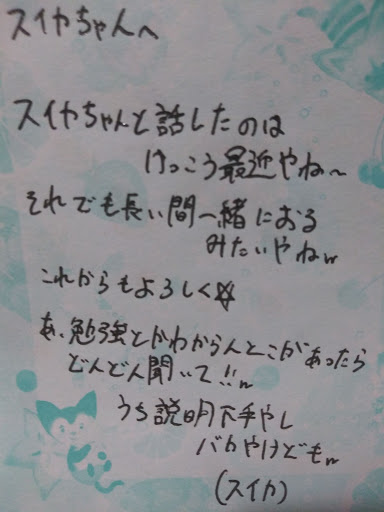 スイカちゃんへ
スイカちゃんと話したのは
けっこう最近やね〜
それでも長い間一緒におる
みたいやねw
これからもよろしく☆
あ、勉強とかわからんとこがあったら
どんどん聞いて!!w
うち説明下手やし
バカやけどもw
(スイカ)